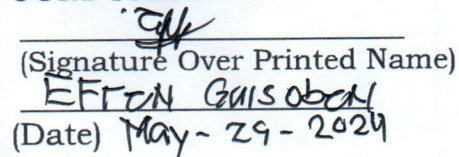 (Signature Over Printed Name)
EFren Guisoben
(Date) May - 29 - 2024